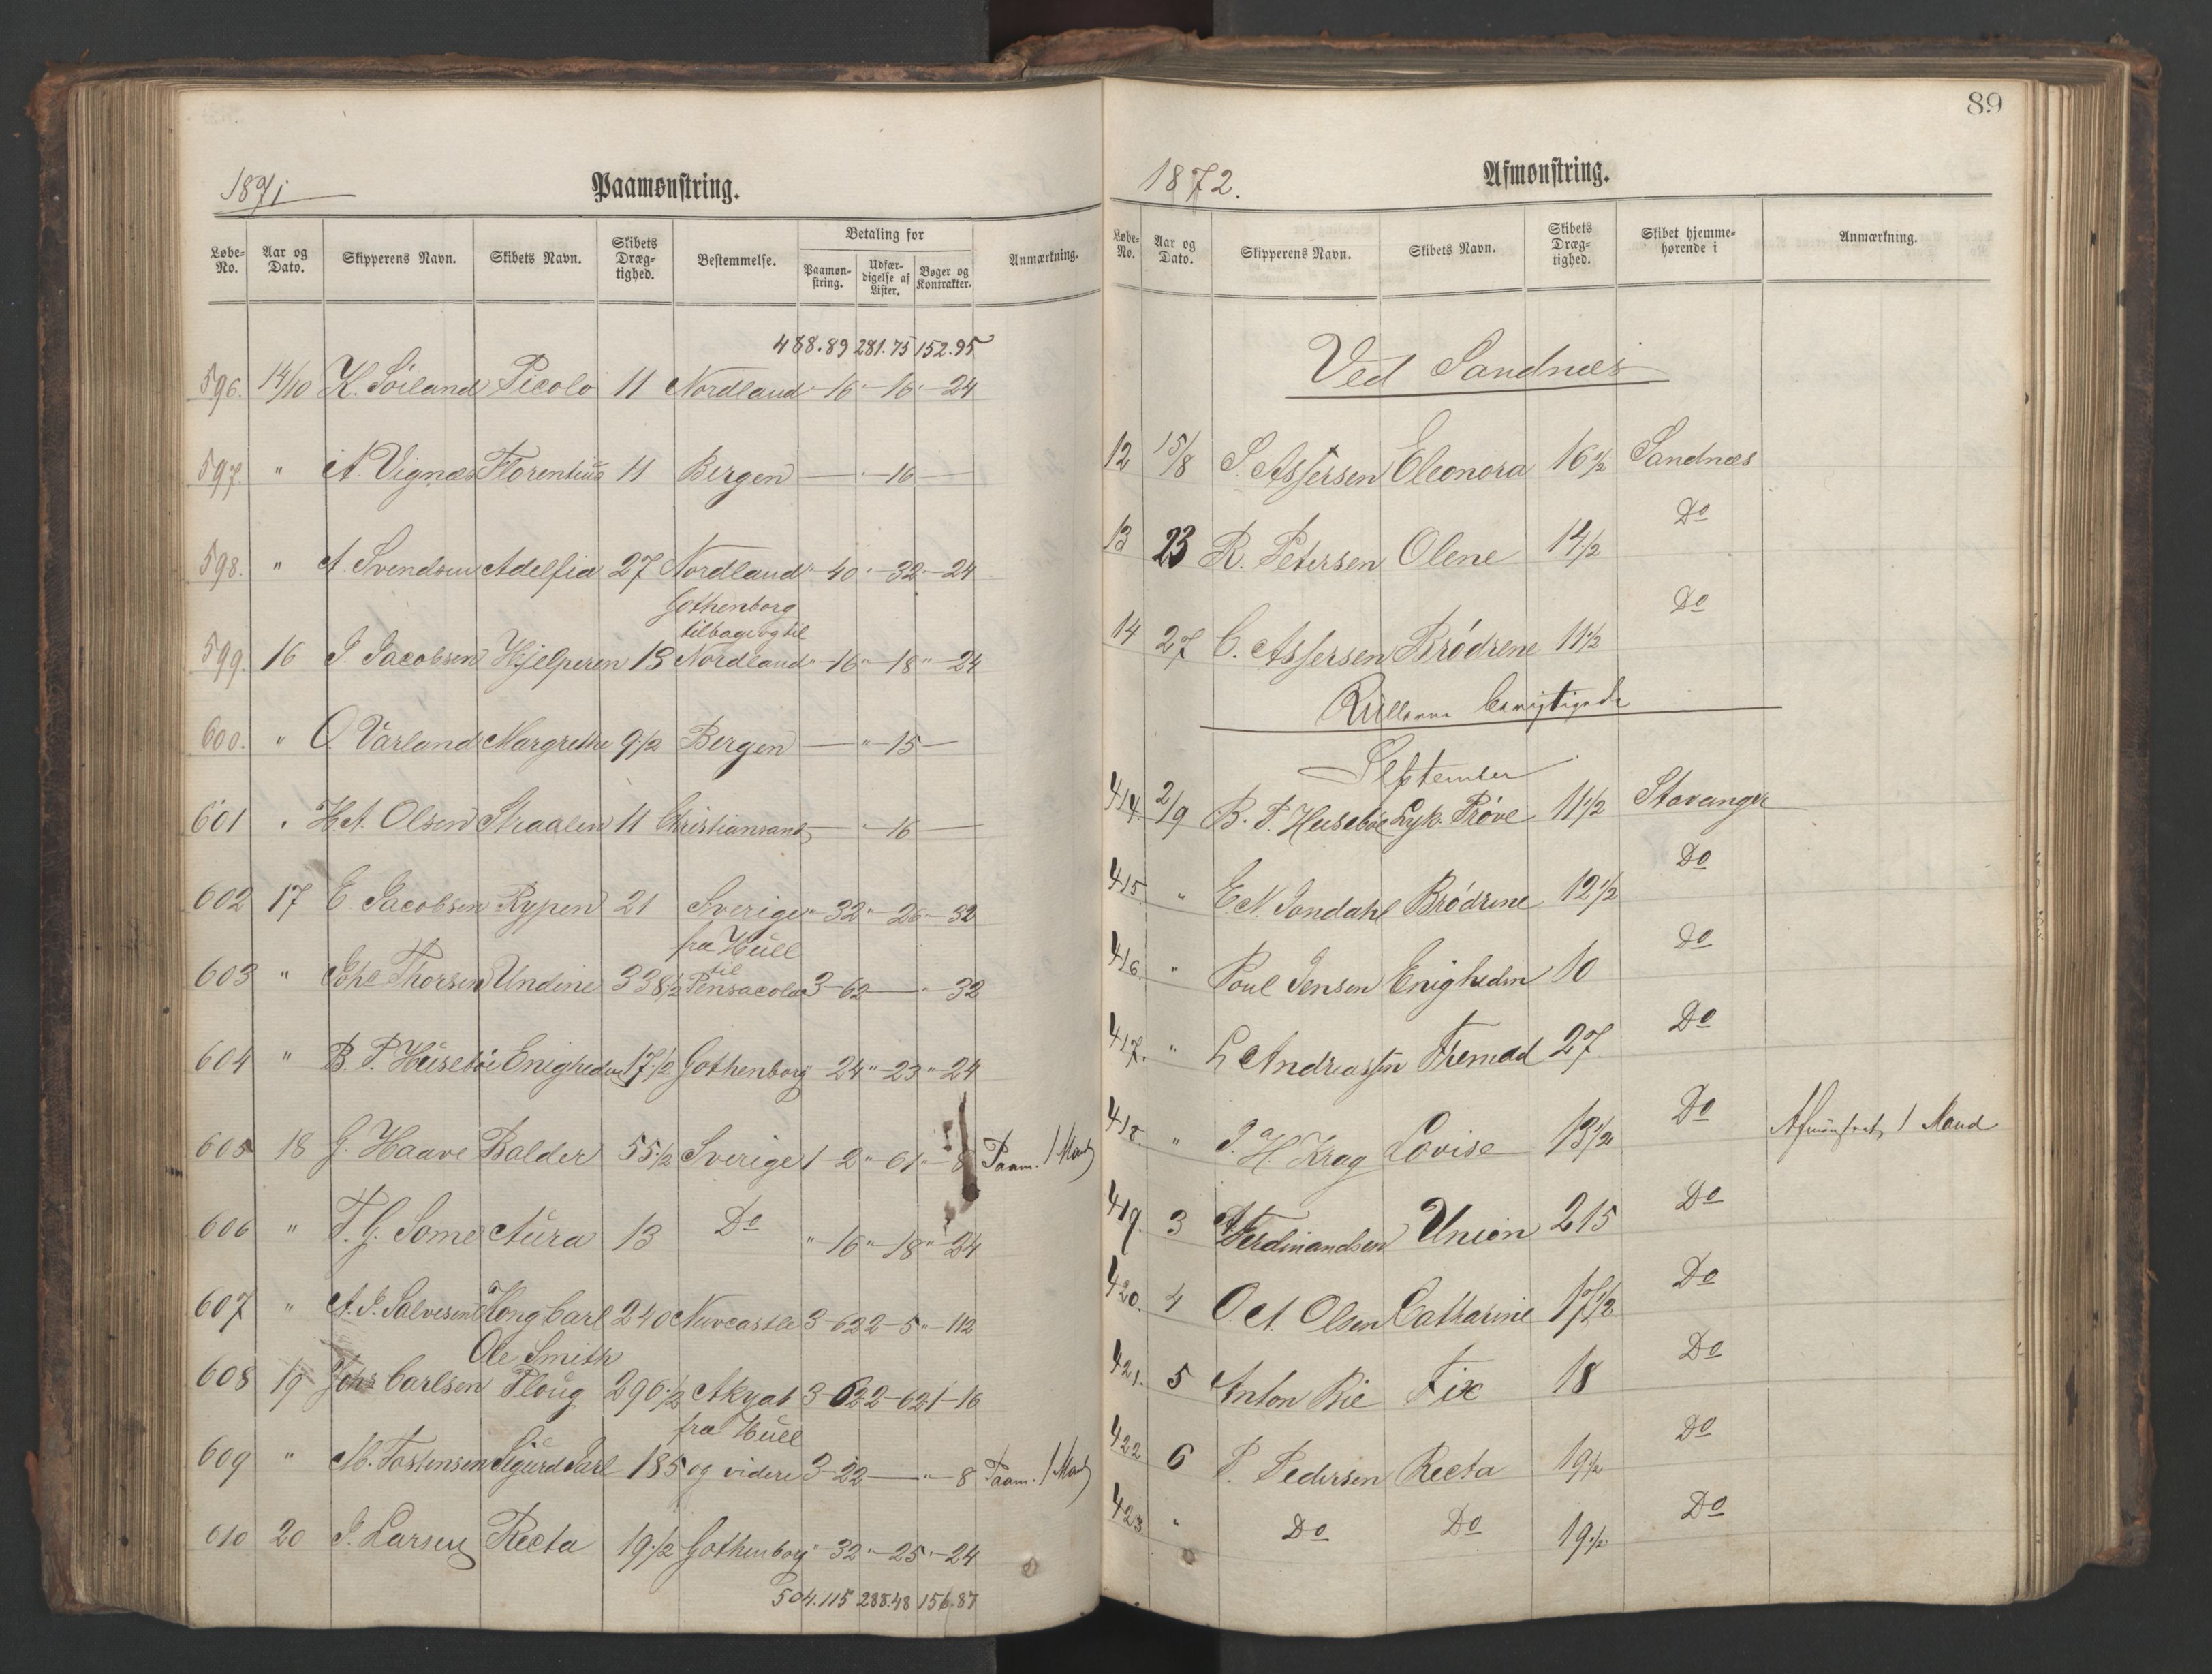 1871
Paamønstring.
Løbe-No. Aar og Dato. Skipperens Navn. Skibets Navn. Skibets Dræg-tighed. Bestemmelse. Betaling for Paamøn-string. Udfær-digelse af Lister. Bøger og Kontrakter. Anmærkning.
488.89 281.75 152.95
596. 14/10 K. Söiland Picolo 11 Nordland " 16 " 16 " 24
597. " A. Vignæs Florentius 11 Bergen — " 16 —
598. " A. Svendsen Adelfia 27 Nordland " 40 " 32 " 24
Gothenborg
tilbage og til
599. 16 J. Jacobsen Hjelperen 13 Nordland " 16 " 18 " 24
600. " O. Varland Margrethe 9 1/2 Bergen — " 15 —
601 " H.A. Olsen Straalen 11 Christiansand — " 16 —
602 17 E. Jacobsen Rypen 21 Sverige " 32 " 26 " 32
fra Hull
til
603 " Johs Thorsen Undine 338 1/2 Pensacola 3-62 — " 32
604 " B. P. Huseböe Enigheden 17 1/2 Gothenborg 24 " 23 " 24
605 18 G. Haave Balder 55 1/2 Sverige 1-2 " 61 " 8 Paam. 1 Mand
606 " T. G. Some Aura 13 Do " 16 " 18 " 24
607 " A. J. Salvesen Kong Carl 240 Newcastle 3-62 2-5 " 112
Ole Smith
608 19 Johs Carlsen Ploug 296 1/2 Akyab 3-62 2-62 1-16
fra Hull
609 " M. Tostensen Sigurd Jarl 185 og videre 3-22 — " 8 Paam. 1 Mand
610 20 J. Larsen Recta 19 1/2 Gothenborg " 32 " 25 " 24
504.115 288.48 156.87
89
1872.
Afmønstring.
Løbe-No. Aar og Dato. Skipperens Navn. Skibets Navn. Skibets Dræg-tighed. Skibet hjemme-hørende i Anmærkning.
Ved Sandnæs
12 15/8 S. Assersen Eleonora 16 1/2 Sandnæs
13 23 R. Petersen Olene 14 1/2 Do
14 27 C. Assersen Brödrene 11 1/2 Do
Rullerne
September
414 2/9 B. P. Huseböe Lyk. Pröve 11 1/2 Stavanger
415 " E. N. Jondahl Brödrene 12 1/2 Do
416 " Poul Jensen Enigheden 10 Do
417. " L Andreassen Fremad 27 Do
418. " J. H. Krag Lovise 13 1/2 Do Afmönstret 1 Mand
419. 3 Ferdinandsen Union 215 Do
420. 4 O. A. Olsen Catharine 17 1/2 Do
421. 5 Anton Rie Fix 18 Do
422 6 P. Pedersen Recta 19 1/2 Do
423 " Do Do 19 1/2 Do